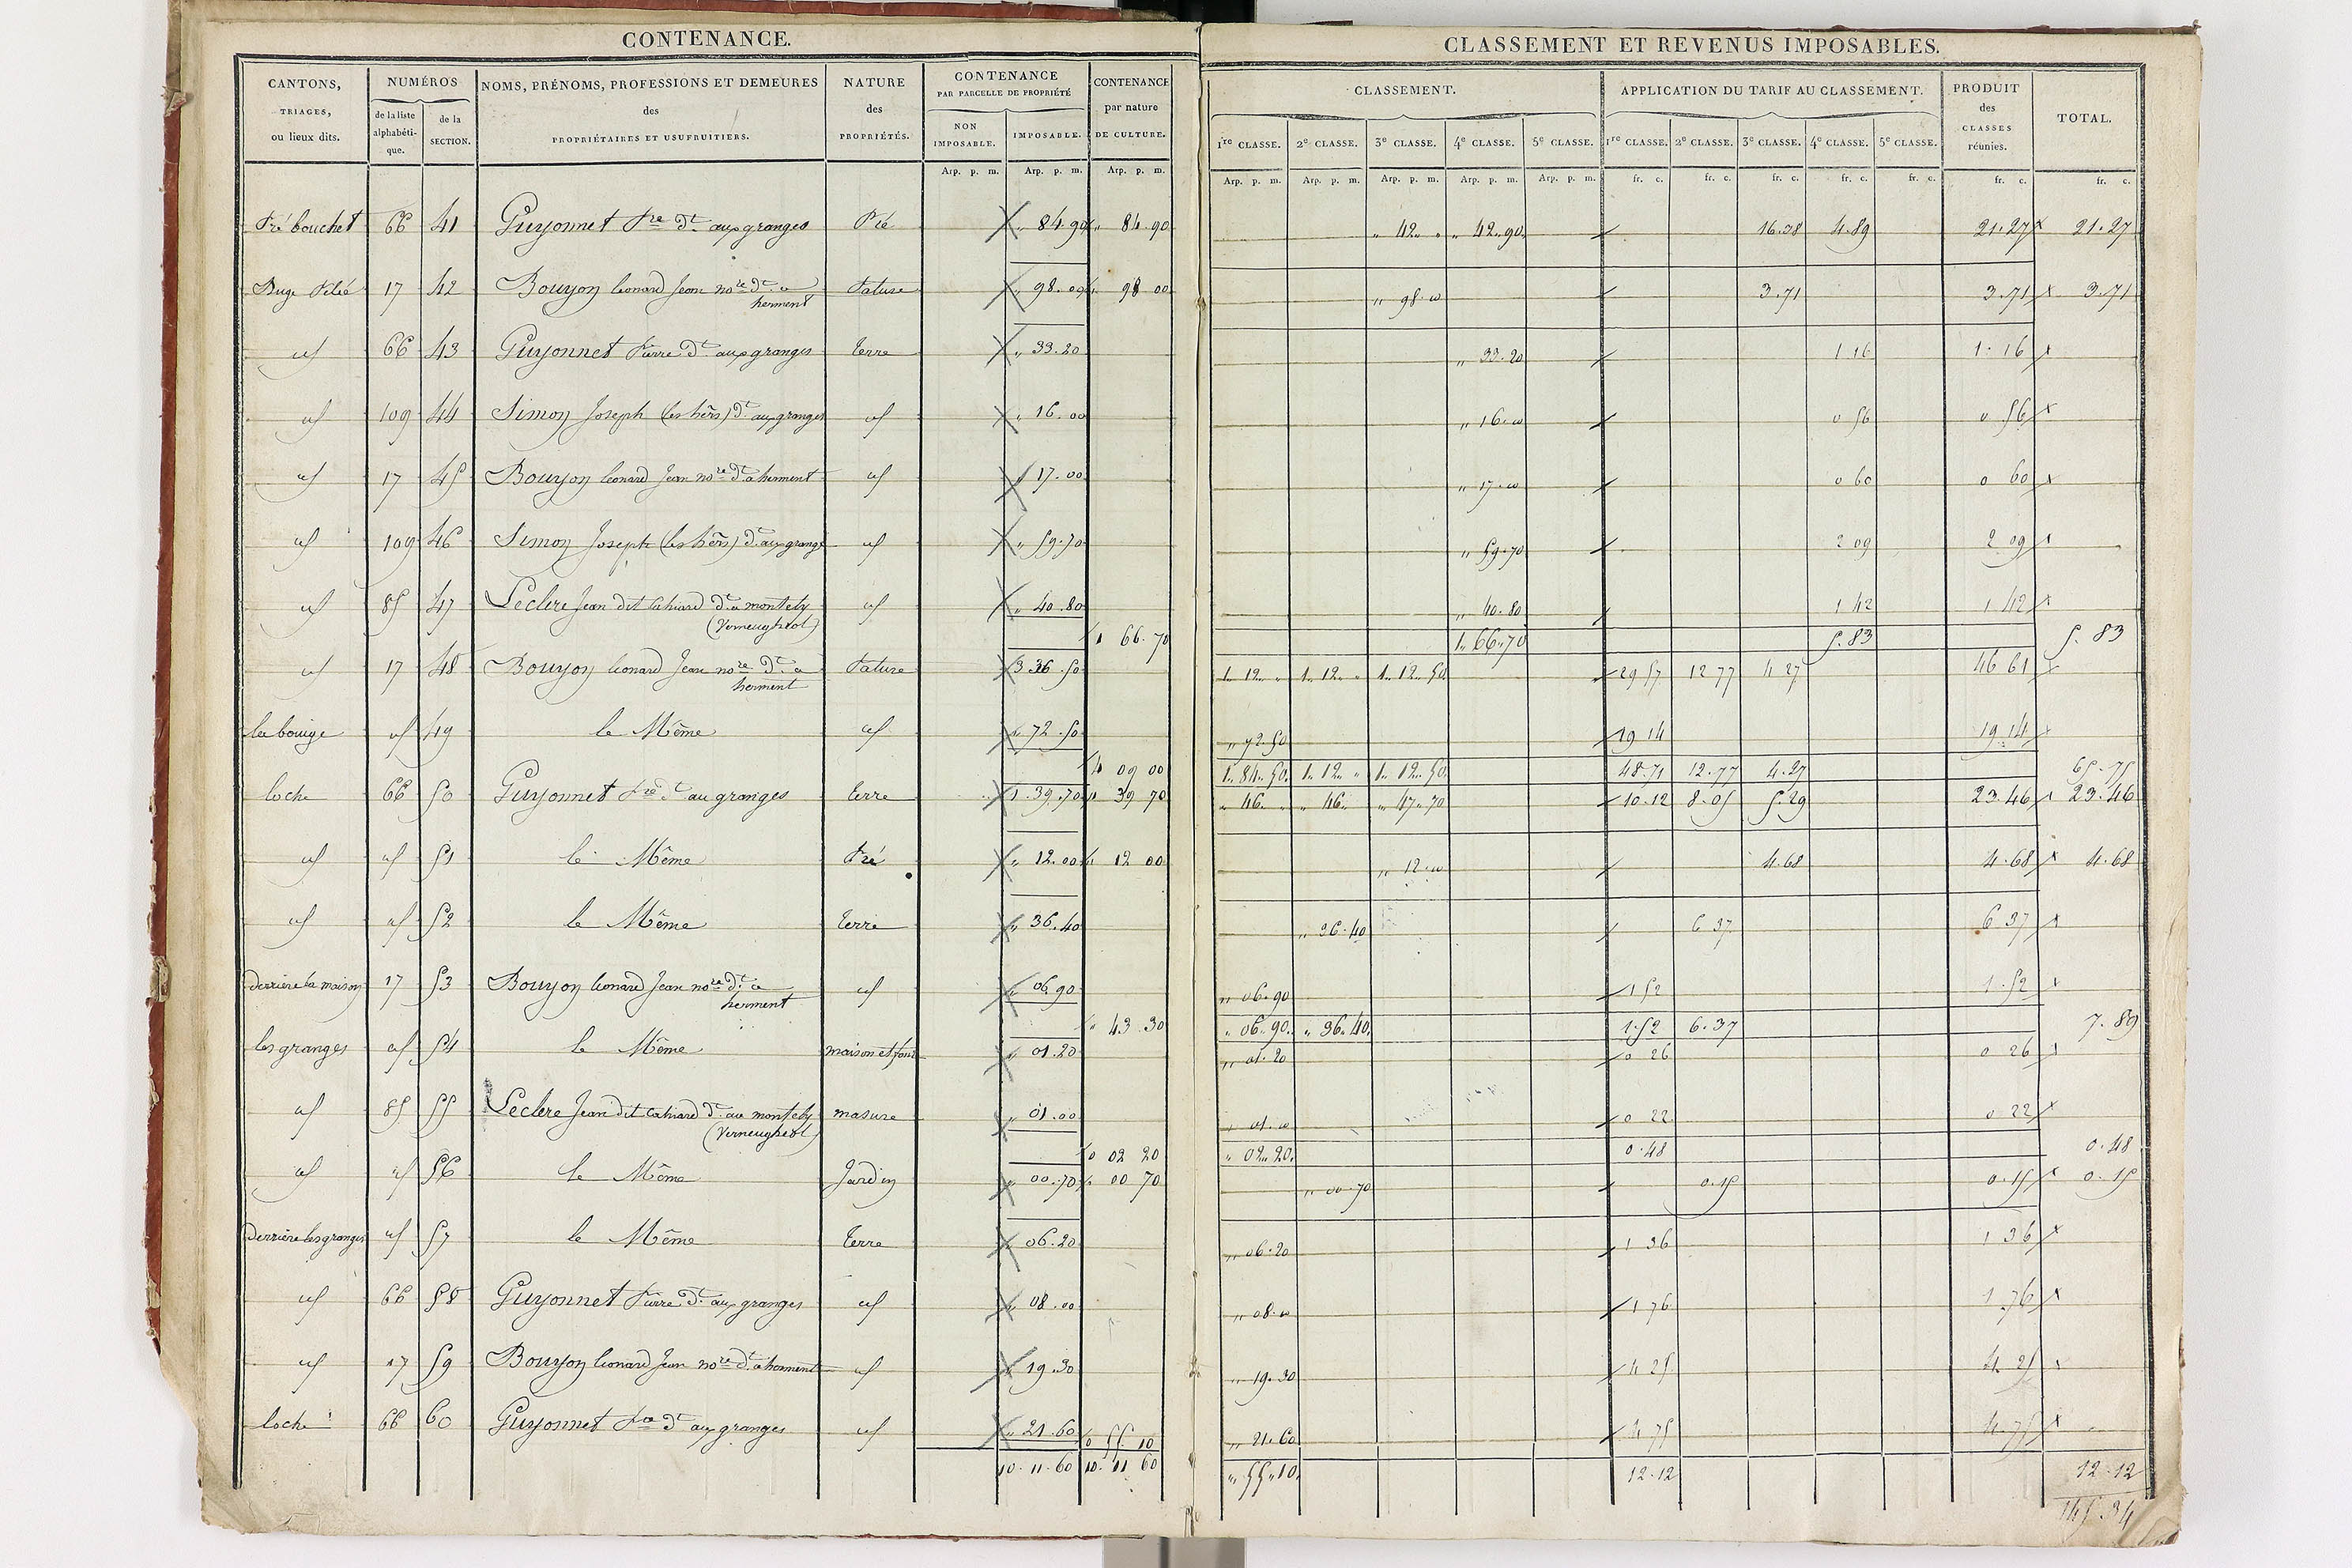 CONTENANCE.
CANTONS, TRIAGES, ou lieux dits. NUMÉROS de la liste alphabéti-que. de la SECTION. NOMS, PRÉNOMS, PROFESSIONS ET DEMEURES des PROPRIÉTAIRES ET USUFRUITIERS. NATURE des PROPRIÉTÉS. CONTENANCE PAR PARCELLE DE PROPRIÉTÉ NON IMPOSABLE. IMPOSABLE. CONTENANCE par nature DE CULTURE.
Arp. p. m. Arp. p. m. Arp. p. m.
Pré bouchet 66 41 Guyonnet Pre dt aux granges Pré „ 84.90 „ 84 90
17 42 Bouyon leonard Jean nore dt a herment Pature „ 98.00 98 00
id 66 43 Guyonnet Pierre dt aux granges terre „ 33.20
id 109 44 Simon Joseph (les hers) dt aux granges id „ 16.00
id 17 45 Bouyon leonard Jean nore dt a herment id „ 17.00
id 109 46 Simon Joseph (les hers) dt aux grange id „ 59.70
id 85 47 Leclere Jean dit Cahiard dt a montely (Verneugheol) id „ 40.80
1 66.70
id 17 48 Bouyon leonard Jean nore dt a herment Pature 3 36.50
la bouige id 49 le Même id „ 72.50
4 09 00
loche 66 50 Guyonnet Pre dt au granges terre 1.39.70 1 39 70
id id 51 le Même Pré „ 12.00 12 00
id id 52 le Même terre „ 36.40
derriere la maison 17 53 Bouyon leonard Jean nore dt a herment id „ 06.90
„ 43.30
les granges id 54 le Même maison et four „ 01.20
id 85 55 Leclere Jean dit Cahiard dt au montely (Verneugheol) masure „ 01.00
0 02 20
id id 56 le Même Jardin „ 00.70 00 70
Derriere les granges id 57 le Même terre „ 06.20
id 66 58 Guyonnet Pierre dt aux granges id „ 08.00
id 17 59 Bouyon leonard Jean nore dt a herment id „ 19.30
loche 66 60 Guyonnet Pre dt aux granges id „ 21.60 0 55 10
10.11.60 10.11 60
CLASSEMENT ET REVENUS IMPOSABLES.
CLASSEMENT. APPLICATION DU TARIF AU CLASSEMENT. PRODUIT des CLASSES réunies. TOTAL.
1re CLASSE. 2e CLASSE. 3e CLASSE. 4e CLASSE. 5e CLASSE. 1re CLASSE. 2e CLASSE. 3e CLASSE. 4e CLASSE. 5e CLASSE.
Arp. p. m. Arp. p. m. Arp. p. m. Arp. p. m. Arp. p. m. fr. c. fr. c. fr. c. fr. c. fr. c. fr. c. fr. c.
„ 42.. „ „ 42..90 16.38 4.89 21.27 21.27
„ 98.00 3.71 3.71 3.71
„ 33.20 1 16 1.16
„ 16.00 0 56 0 56
„ 17.00 0 60 0 60
„ 59.70 2 09 2 09
„ 40.80 1 42 1 42
1..66..70 5.83 5.83
1..12.. „ 1..12.. „ 1..12..50 29 57 12 77 4 27 46 61
„ 72.50 19 14 19.14
1..84..50 1..12.. „ 1..12..50 48.71 12.77 4.27 65.75
„ 46.. „ „ 46.. „ 47..70 10.12 8.05 5.29 23.46 23.46
„ 12.00 4.68 4.68 4.68
„ 36.40 6 37 6 37
„ 06.90 1 52 1.52
„ 06..90 „ 36..40 1.52 6.37 7.89
„ 01.20 0 26 0 26
„ 01.00 0 22 0 22
„ 02..20 0.48 0.48
„ 00.70 0.15 0.15 0.15
„ 06.20 1 36 1 36
„ 08.00 1 76 1.76
„ 19.30 4 25 4.25
„ 21.60 4 75 4.75
„ 55..10 12.12 12.12
145.34